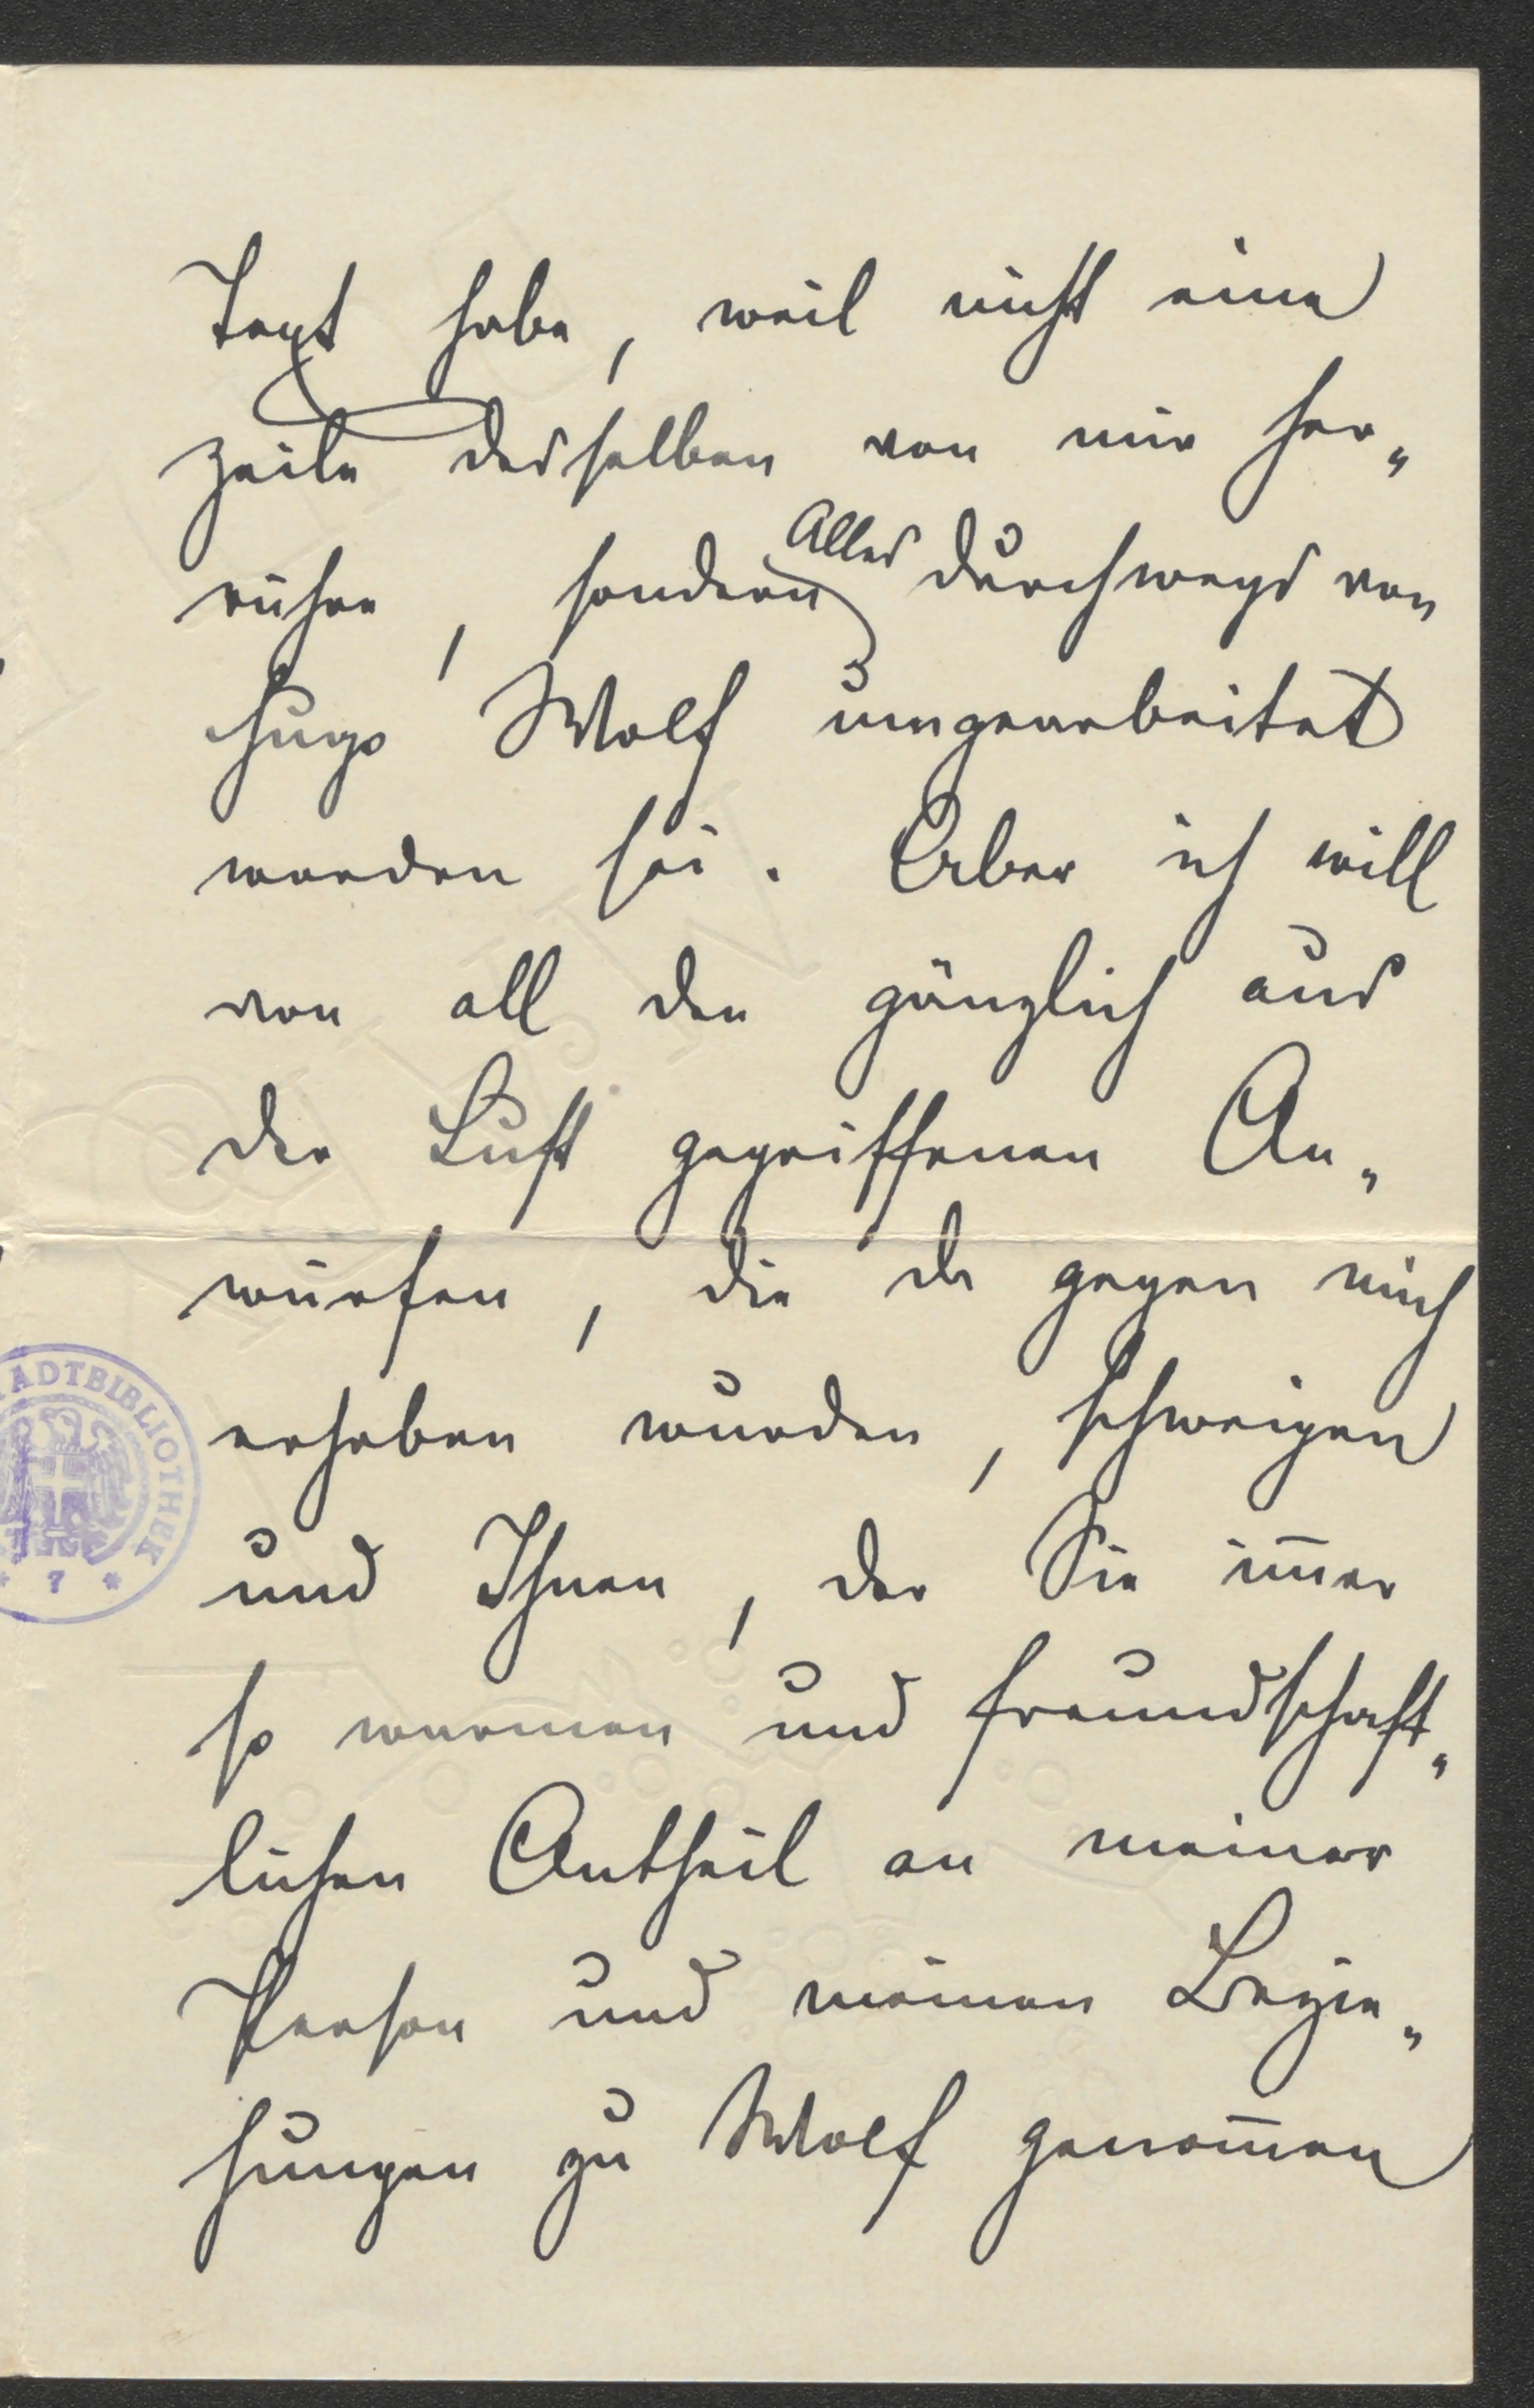 Text habe, weil nicht eine
Zeile desselben von mir her„
rühre, sondern Alles durchwegs von
Hugo Wolf umgearbeitet
worden sei. Aber ich will
von all den gänzlich aus
der Luft gegriffenen An„
würfen, die da gegen mich
erhoben wurden, schweigen
und Ihnen, der Sie im̅er
so warmen und freundschaft„
lichen Antheil an meiner
Person und meinen Bezie„
hungen zu Wolf genom̅en
STADTBIBLIOTHEK
* 7 *